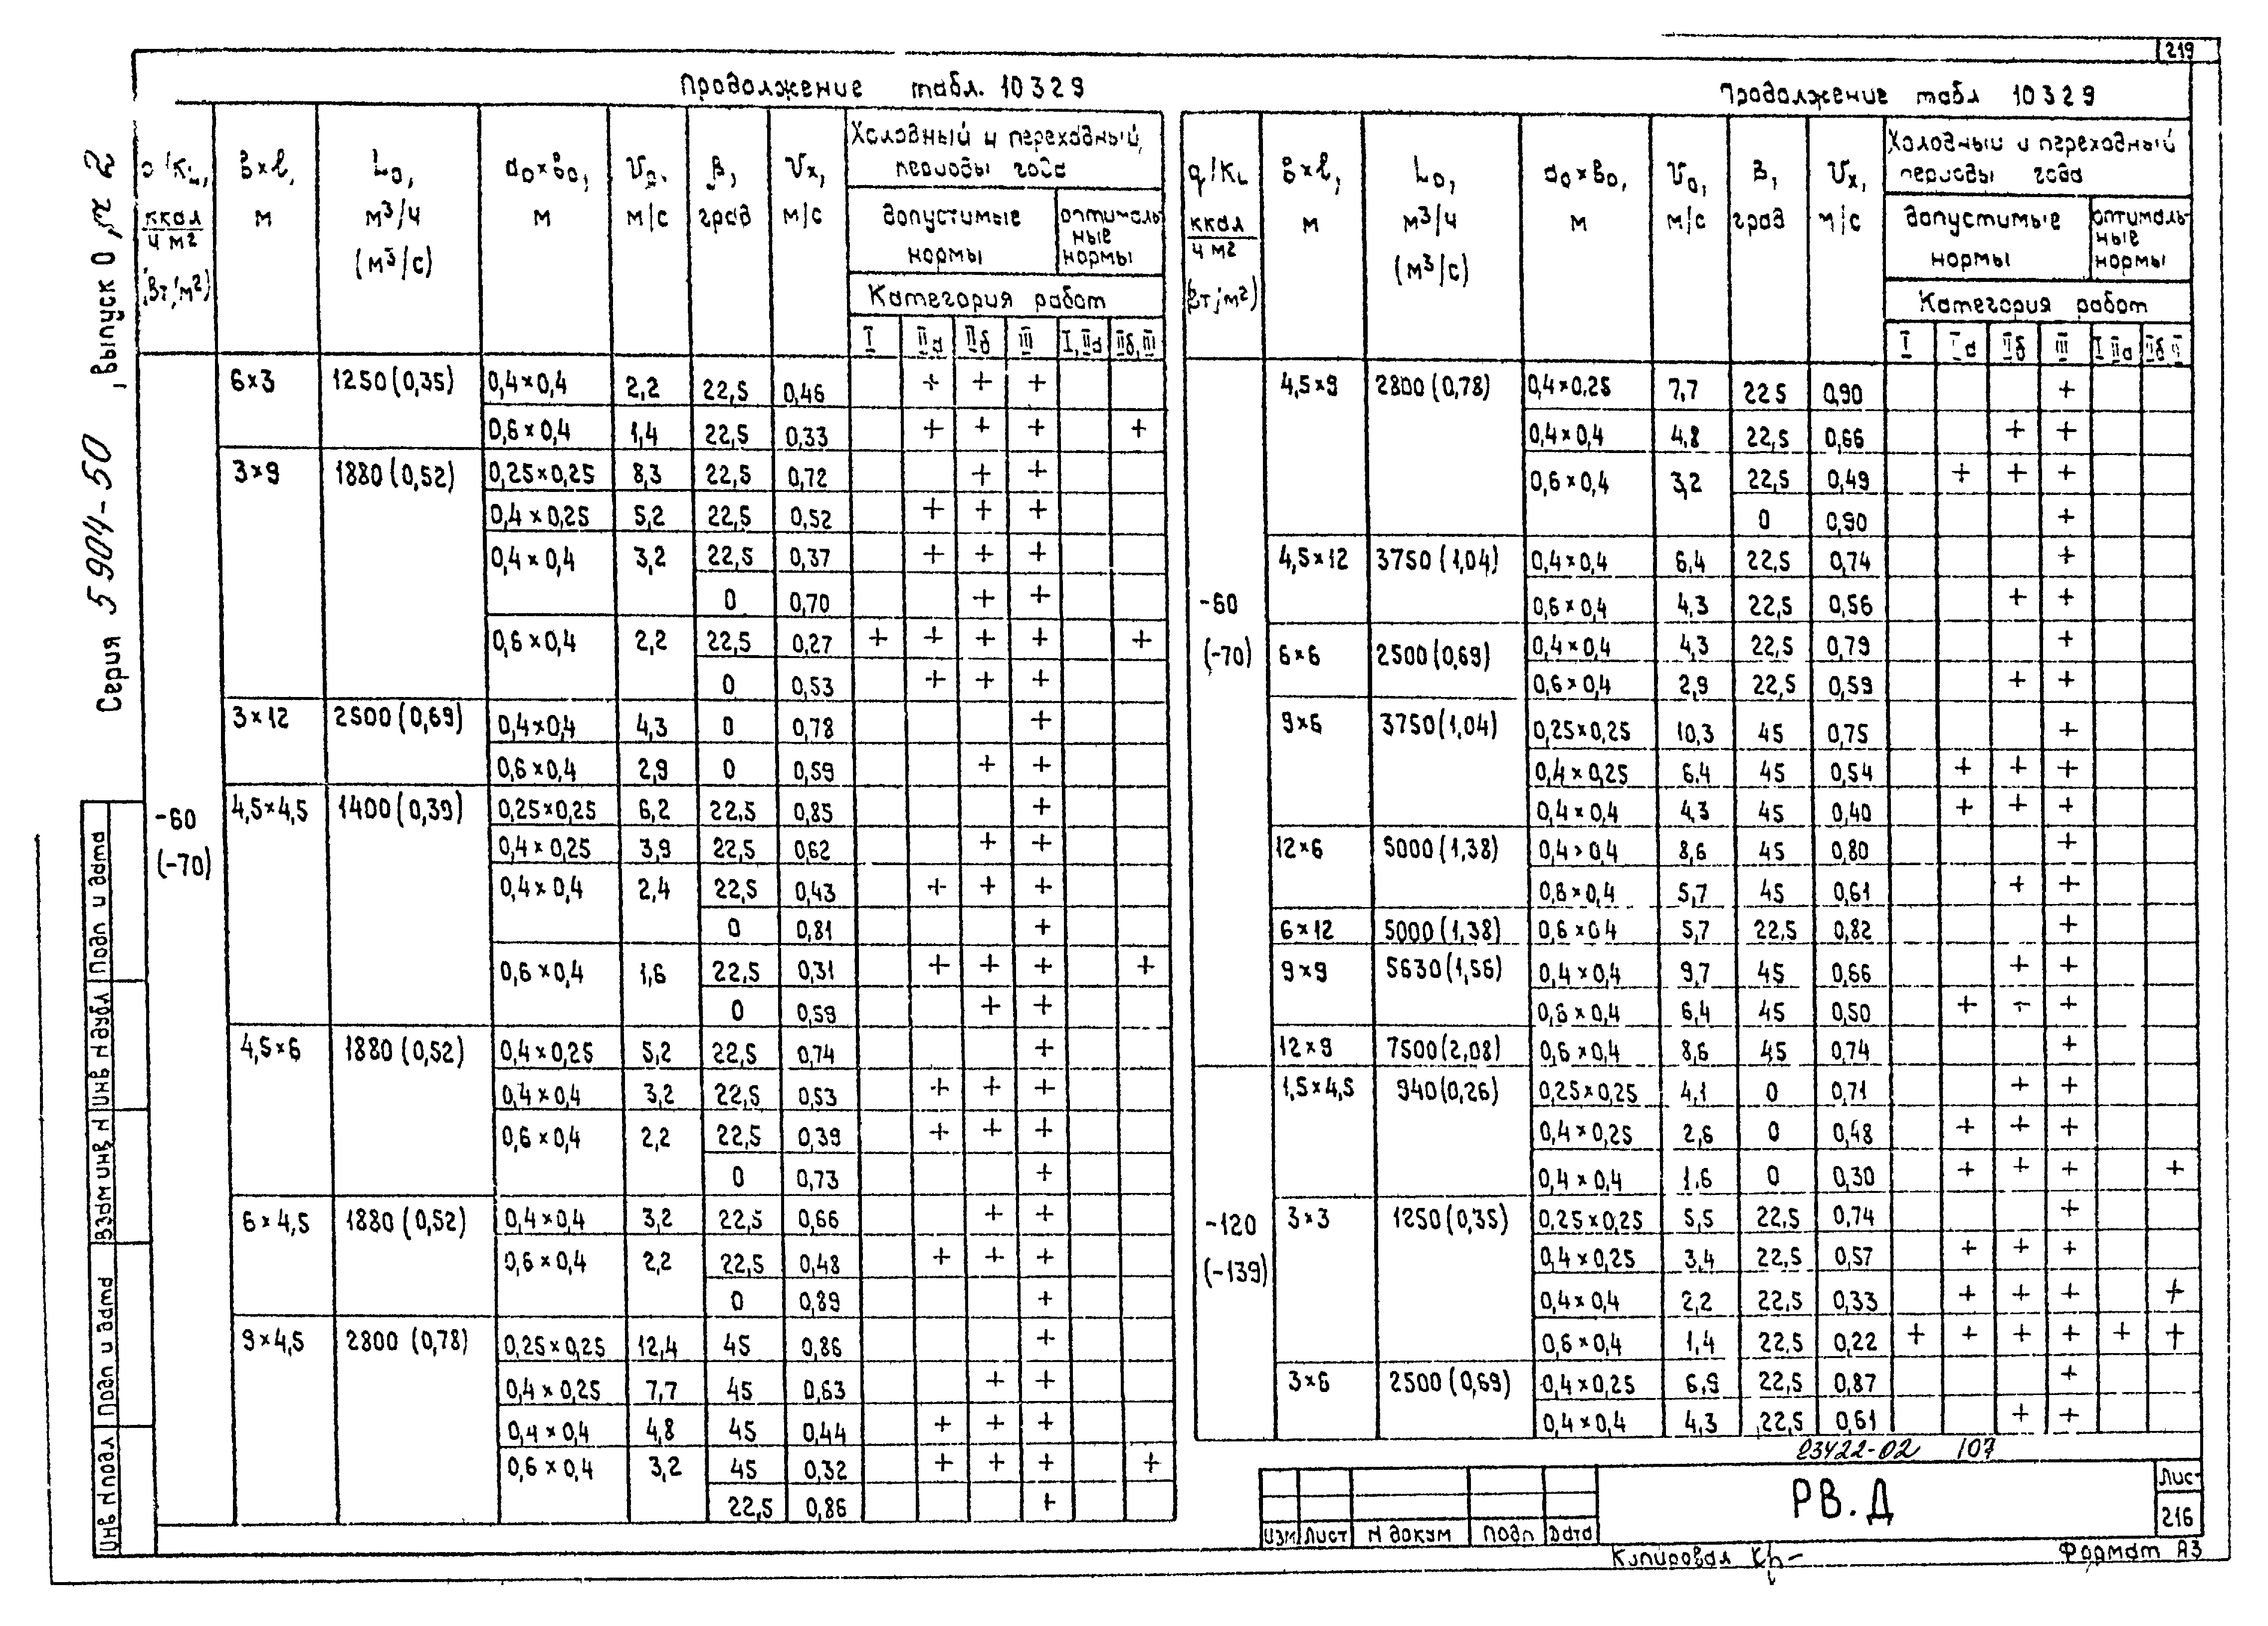 219
Серия 5904-50, выпуск 0
Продолжение табл. 10 3 2 9
q/KL, ккал/ч м² (Вт/м²) | в×l, м | L₀, м³/ч (м³/с) | a₀×в₀, м | V₀, м/с | β, град | Vx, м/с | Холодный и переходный периоды года
допустимые нормы | оптимальные нормы
Категория работ
I | IIа | IIб | III | I, IIа | IIб, III
-60 (-70)
6×3 | 1250(0,35) | 0,4×0,4 | 2,2 | 22,5 | 0,46 | | + | + | + | |
0,6×0,4 | 1,4 | 22,5 | 0,33 | | + | + | + | | +
3×9 | 1880(0,52) | 0,25×0,25 | 8,3 | 22,5 | 0,72 | | | + | + | |
0,4×0,25 | 5,2 | 22,5 | 0,52 | | + | + | + | |
0,4×0,4 | 3,2 | 22,5 | 0,37 | | + | + | + | |
0 | 0,70 | | | + | + | |
0,6×0,4 | 2,2 | 22,5 | 0,27 | + | + | + | + | | +
0 | 0,53 | | + | + | + | |
3×12 | 2500(0,69) | 0,4×0,4 | 4,3 | 0 | 0,78 | | | | + | |
0,6×0,4 | 2,9 | 0 | 0,59 | | | + | + | |
4,5×4,5 | 1400(0,39) | 0,25×0,25 | 6,2 | 22,5 | 0,85 | | | | + | |
0,4×0,25 | 3,9 | 22,5 | 0,62 | | | + | + | |
0,4×0,4 | 2,4 | 22,5 | 0,43 | | + | + | + | |
0 | 0,81 | | | | + | |
0,6×0,4 | 1,6 | 22,5 | 0,31 | | + | + | + | | +
0 | 0,59 | | | + | + | |
4,5×6 | 1880(0,52) | 0,4×0,25 | 5,2 | 22,5 | 0,74 | | | | + | |
0,4×0,4 | 3,2 | 22,5 | 0,53 | | + | + | + | |
0,6×0,4 | 2,2 | 22,5 | 0,39 | | + | + | + | |
0 | 0,73 | | | | + | |
6×4,5 | 1880(0,52) | 0,4×0,4 | 3,2 | 22,5 | 0,66 | | | + | + | |
0,6×0,4 | 2,2 | 22,5 | 0,48 | | + | + | + | |
0 | 0,89 | | | | + | |
9×4,5 | 2800 (0,78) | 0,25×0,25 | 12,4 | 45 | 0,86 | | | | + | |
0,4×0,25 | 7,7 | 45 | 0,63 | | | + | + | |
0,4×0,4 | 4,8 | 45 | 0,44 | | + | + | + | |
0,6×0,4 | 3,2 | 45 | 0,32 | | + | + | + | | +
22,5 | 0,86 | | | | + | |
Продолжение табл 10 3 2 9
q/KL ккал/ч м² (Вт/м²) | в×l, м | L₀, м³/ч (м³/с) | a₀×в₀, м | V₀, м/с | β, град | Vx, м/с | Холодный и переходный периоды года
допустимые нормы | оптимальные нормы
Категория работ
I | IIа | IIб | III | I IIа | IIб III
-60 (-70)
4,5×9 | 2800(0,78) | 0,4×0,25 | 7,7 | 22 5 | 0,90 | | | | + | |
0,4×0,4 | 4,8 | 22,5 | 0,66 | | | + | + | |
0,6×0,4 | 3,2 | 22,5 | 0,49 | | + | + | + | |
0 | 0,90 | | | | + | |
4,5×12 | 3750(1,04) | 0,4×0,4 | 6,4 | 22,5 | 0,74 | | | | + | |
0,6×0,4 | 4,3 | 22,5 | 0,56 | | | + | + | |
6×6 | 2500(0,69) | 0,4×0,4 | 4,3 | 22,5 | 0,79 | | | | + | |
0,6×0,4 | 2,9 | 22,5 | 0,59 | | | + | + | |
9×6 | 3750(1,04) | 0,25×0,25 | 10,3 | 45 | 0,75 | | | | + | |
0,4×0,25 | 6,4 | 45 | 0,54 | | + | + | + | |
0,4×0,4 | 4,3 | 45 | 0,40 | | + | + | + | |
12×6 | 5000(1,38) | 0,4×0,4 | 8,6 | 45 | 0,80 | | | | + | |
0,6×0,4 | 5,7 | 45 | 0,61 | | | + | + | |
6×12 | 5000(1,38) | 0,6×0,4 | 5,7 | 22,5 | 0,82 | | | | + | |
9×9 | 5630(1,56) | 0,4×0,4 | 9,7 | 45 | 0,66 | | | + | + | |
0,6×0,4 | 6,4 | 45 | 0,50 | | + | + | + | |
12×9 | 7500(2,08) | 0,6×0,4 | 8,6 | 45 | 0,74 | | | | + | |
-120 (-139)
1,5×4,5 | 940(0,26) | 0,25×0,25 | 4,1 | 0 | 0,71 | | | + | + | |
0,4×0,25 | 2,6 | 0 | 0,48 | | + | + | + | |
0,4×0,4 | 1,6 | 0 | 0,30 | | + | + | + | | +
3×3 | 1250(0,35) | 0,25×0,25 | 5,5 | 22,5 | 0,74 | | | | + | |
0,4×0,25 | 3,4 | 22,5 | 0,57 | | + | + | + | |
0,4×0,4 | 2,2 | 22,5 | 0,33 | | + | + | + | | +
0,6×0,4 | 1,4 | 22,5 | 0,22 | + | + | + | + | + | +
3×6 | 2500(0,69) | 0,4×0,25 | 6,9 | 22,5 | 0,87 | | | | + | |
0,4×0,4 | 4,3 | 22,5 | 0,61 | | | + | + | |
23422-02 107
РВ.Д
Лист
216
Изм Лист N докум Подп Дата
Копировал
Формат А3
Инв N подл
Подп и дата
Взам инв N
Инв N дубл
Подп и дата